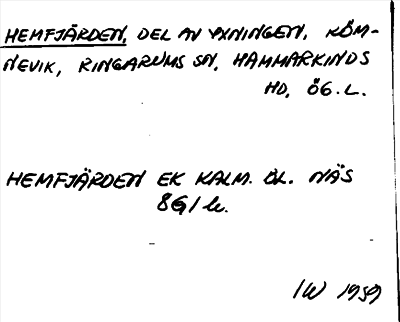 HEMFJÄRDEN, DEL AV YXNINGEN, RÖM-
NEVIK, RINGARUMS SN, HAMMARKINDS
HD, ÖG. L.
HEMFJÄRDEN EK KALM. ÖL. NÄS
8G1
IW 1959